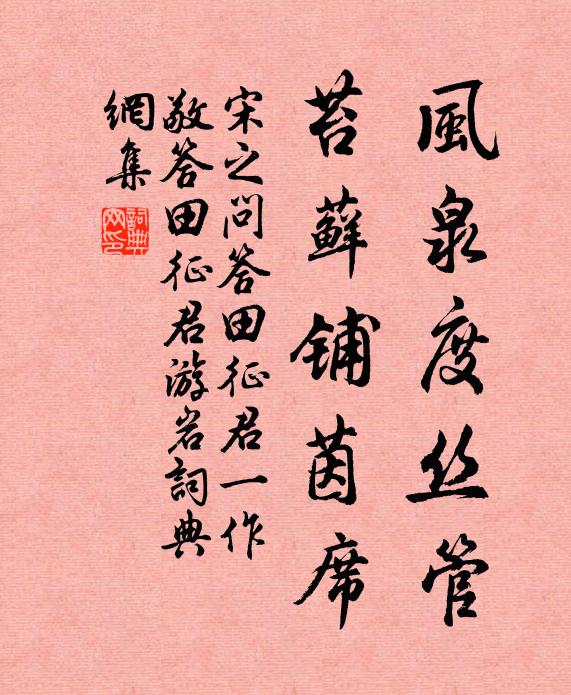 風泉度丝管
苔蘚铺茵席
宋之问答田征君一作
敬答田征君游岩詞典
網集
詞典網印